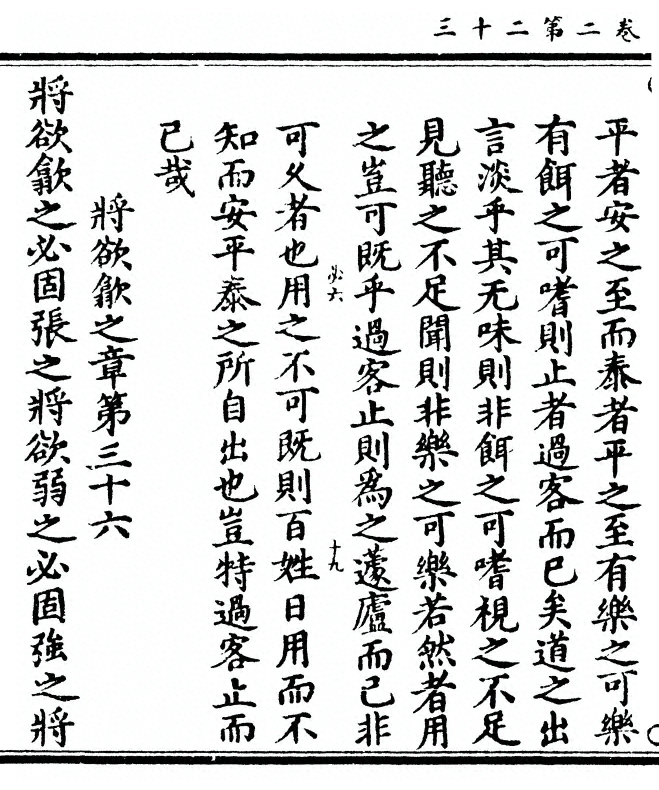 卷二第二十三
平者安之至而泰者平之至有樂之可樂
有餌之可嗜則止者過客而已矣道之出
言淡乎其无味則非餌之可嗜視之不足
見聽之不足聞則非樂之可樂若然者用
之豈可既乎過客止則爲之蘧廬而已非
必六
十九
可久者也用之不可既則百姓日用而不
知而安平泰之所自出也豈特過客止而
已哉
將欲歙之章第三十六
將欲歙之必固張之將欲弱之必固強之將